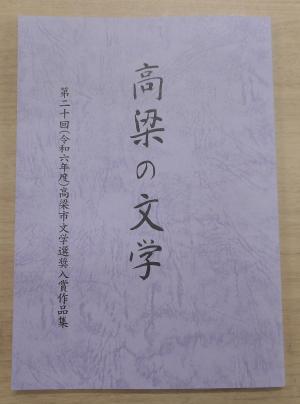 高梁の文学
第二十回(令和六年度)高梁市文学選奨入賞作品集